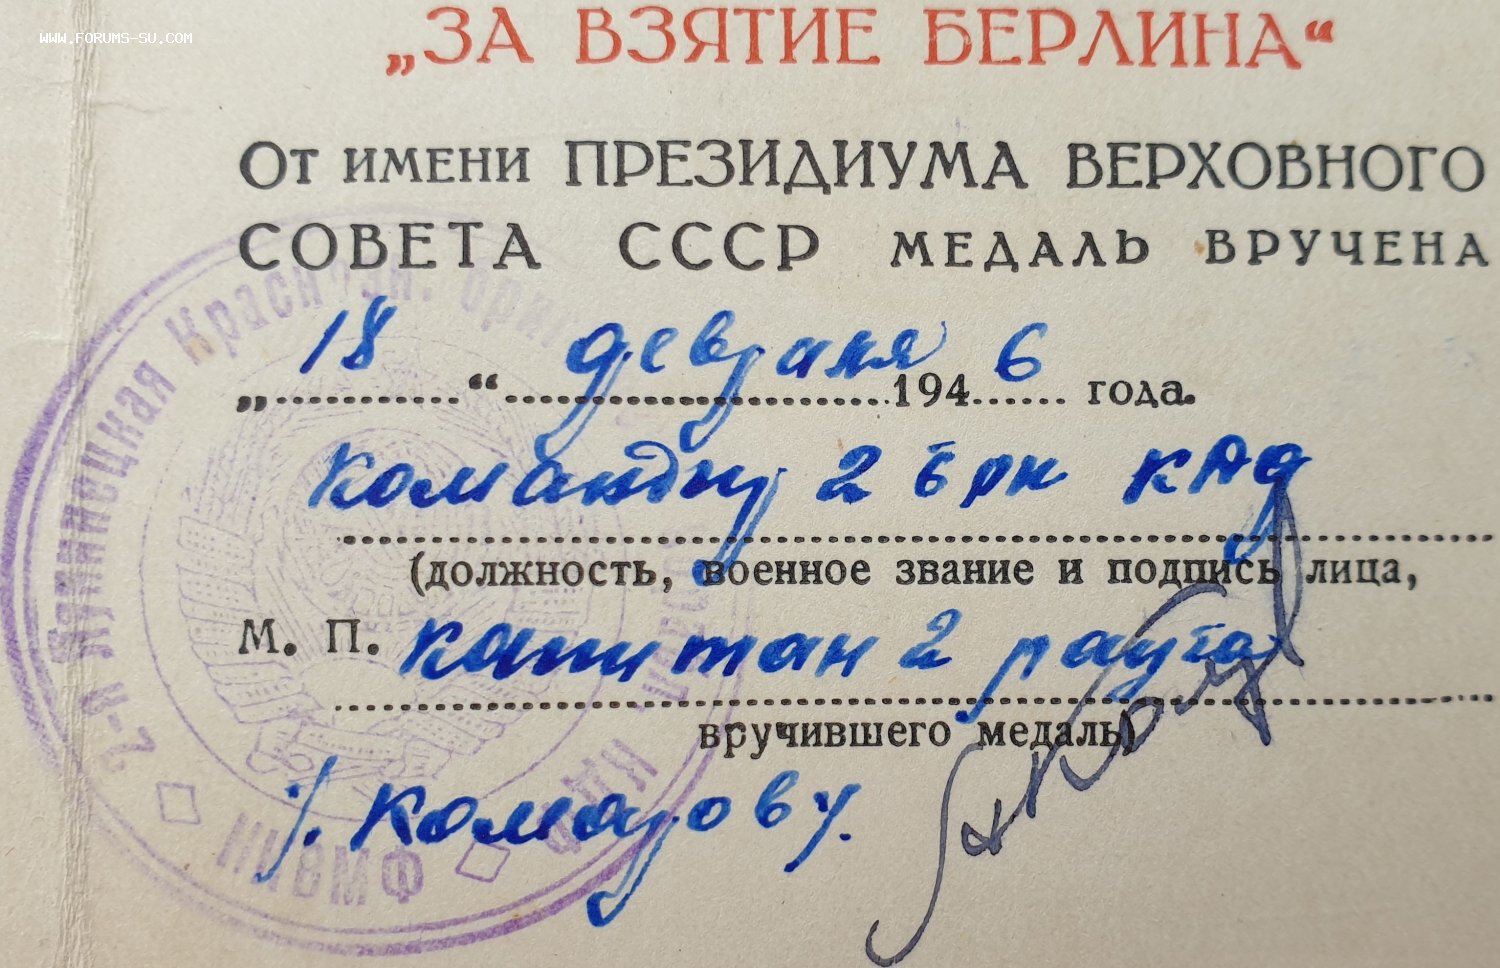 WWW.FORUMS-SU.COM
„ЗА ВЗЯТИЕ БЕРЛИНА“
От имени ПРЕЗИДИУМА ВЕРХОВНОГО
СОВЕТА СССР МЕДАЛЬ ВРУЧЕНА
„ 18 “ февраля 194 6 года.
Командир 2 брк КАФ
(должность, военное звание и подпись лица,
М. П. капитан 2 ранга
вручившего медаль)
2-я Лунинецкая Краснозн. бриг
НКВМФ